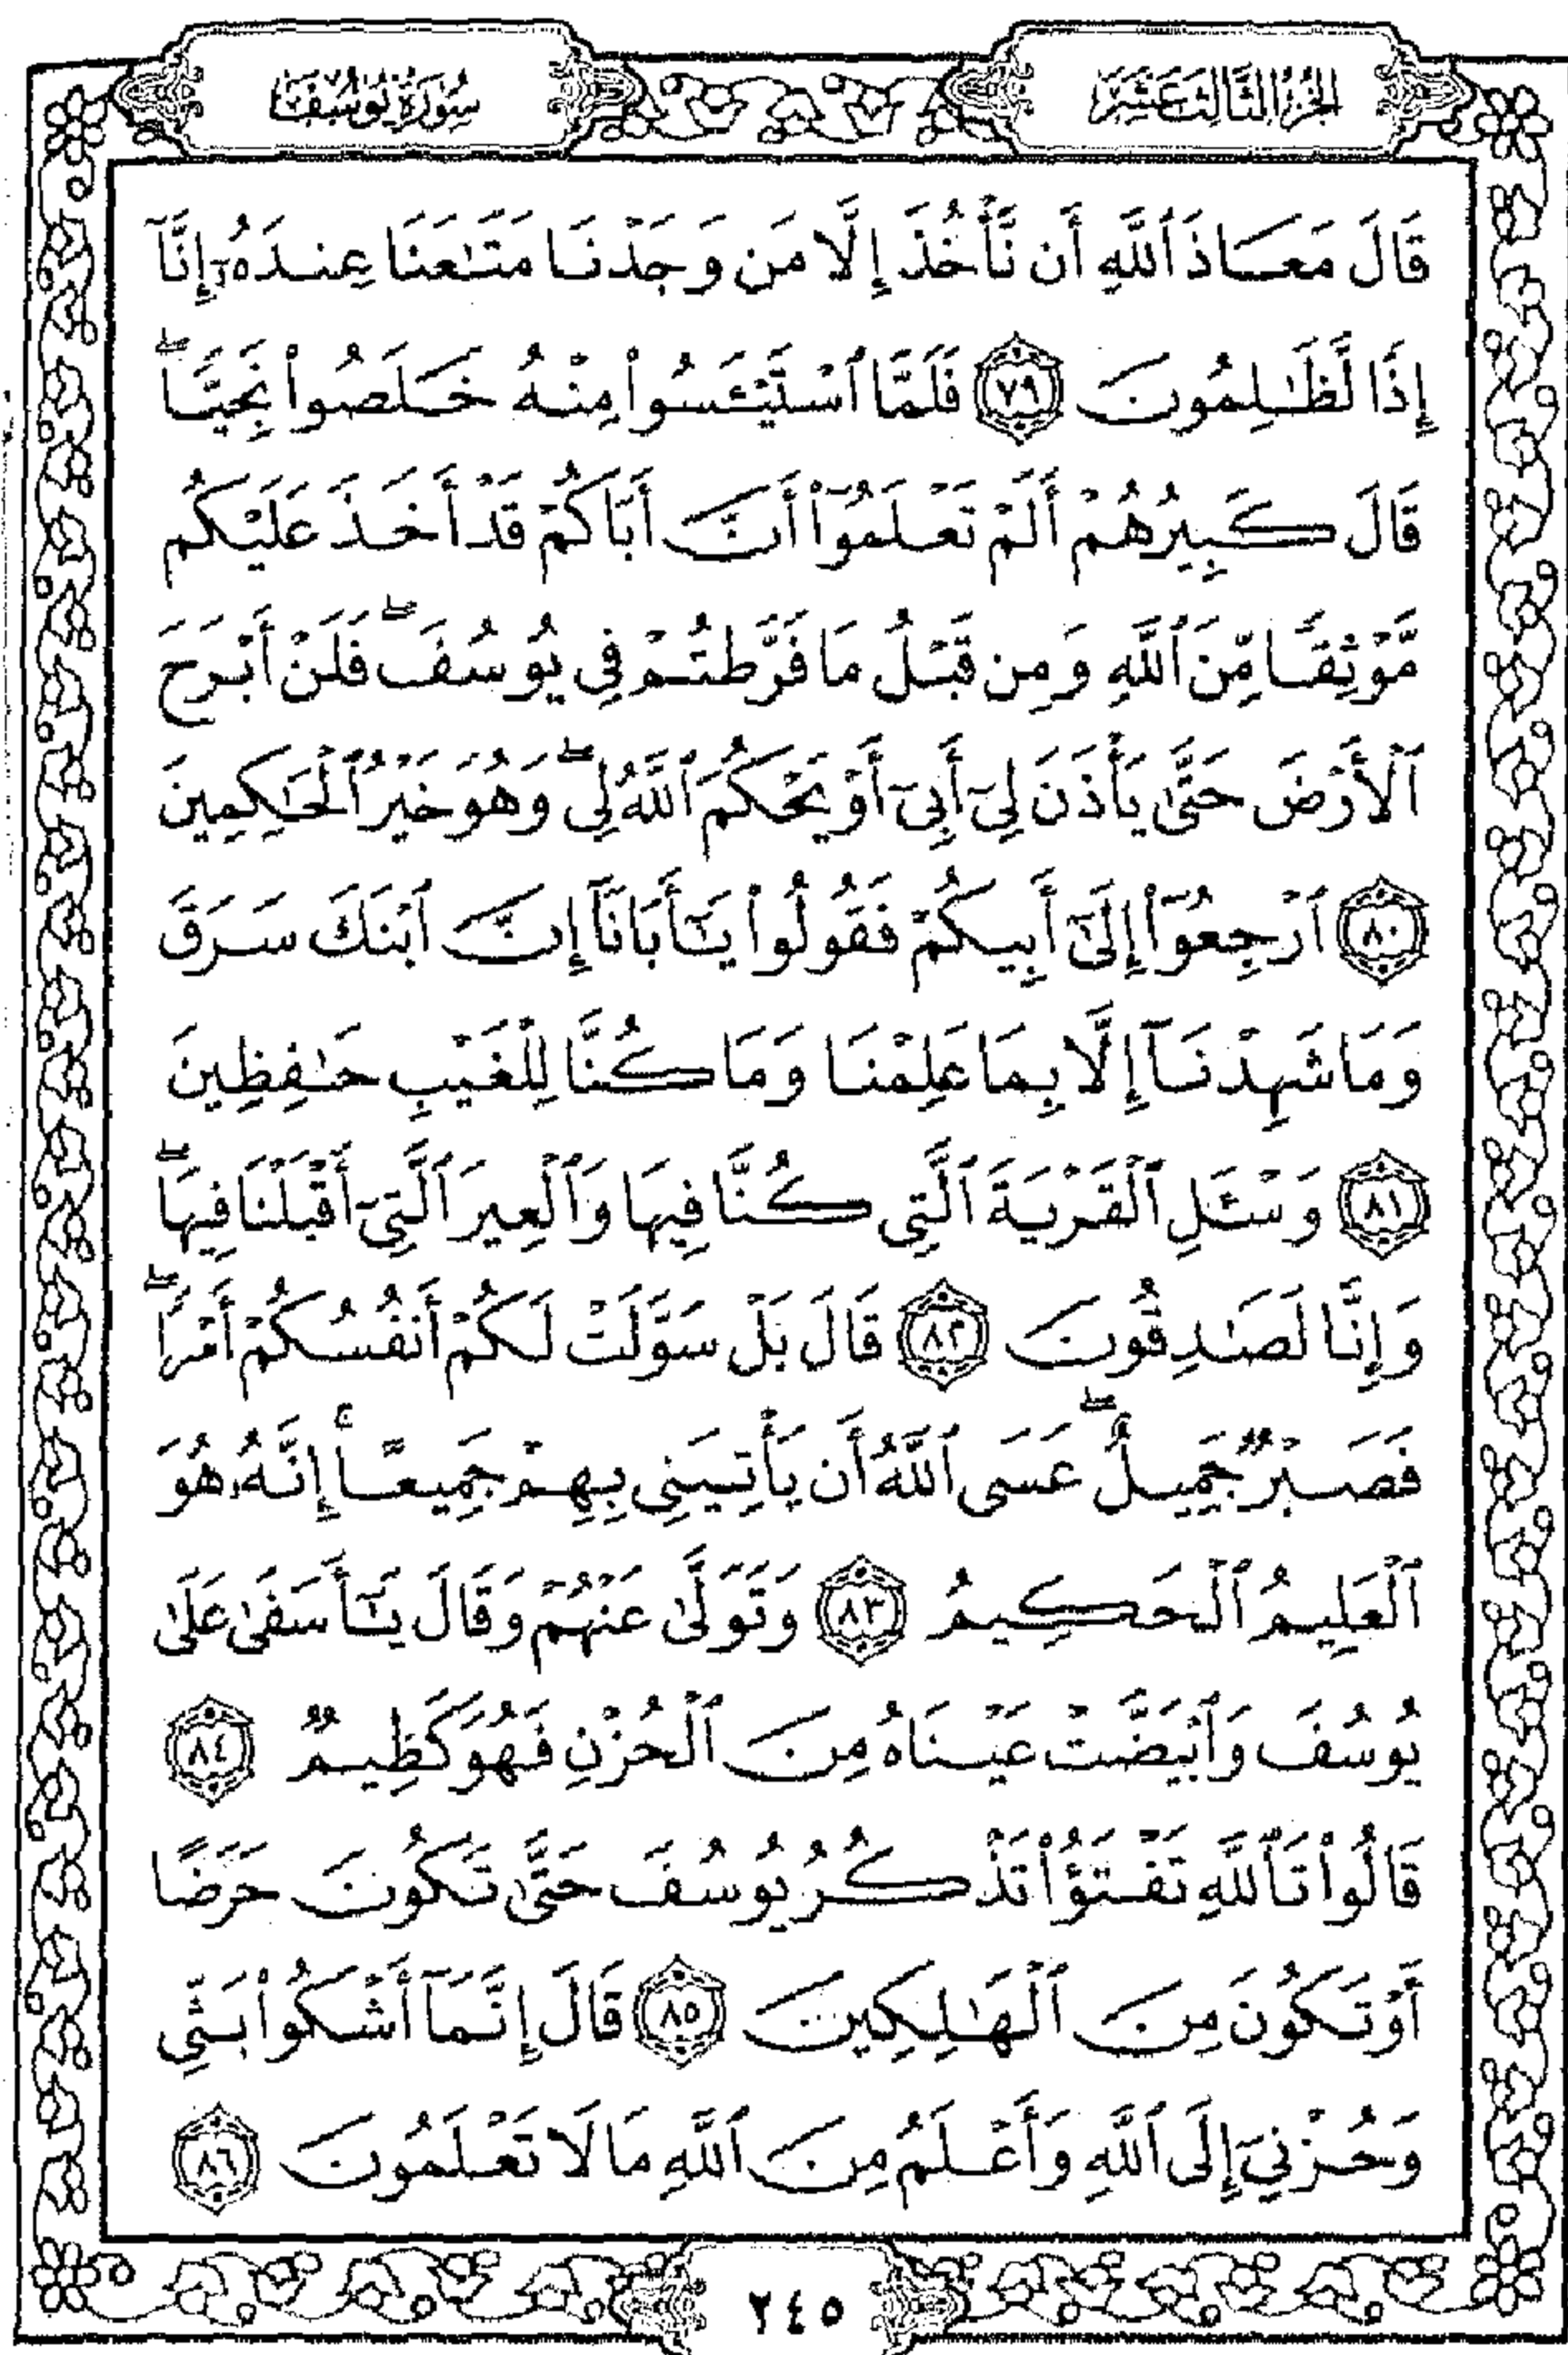 الجزء الثالث عشر
سورة يوسف
قَالَ مَعَاذَ ٱللَّهِ أَن نَّأْخُذَ إِلَّا مَن وَجَدْنَا مَتَٰعَنَا عِندَهُۥٓ إِنَّآ
إِذًا لَّظَٰلِمُونَ ٧٩ فَلَمَّا ٱسْتَيْـَٔسُوا۟ مِنْهُ خَلَصُوا۟ نَجِيًّا ۖ
قَالَ كَبِيرُهُمْ أَلَمْ تَعْلَمُوٓا۟ أَنَّ أَبَاكُمْ قَدْ أَخَذَ عَلَيْكُم
مَّوْثِقًا مِّنَ ٱللَّهِ وَمِن قَبْلُ مَا فَرَّطتُمْ فِي يُوسُفَ ۖ فَلَنْ أَبْرَحَ
ٱلْأَرْضَ حَتَّىٰ يَأْذَنَ لِيٓ أَبِيٓ أَوْ يَحْكُمَ ٱللَّهُ لِي ۖ وَهُوَ خَيْرُ ٱلْحَٰكِمِينَ
٨٠ ٱرْجِعُوٓا۟ إِلَىٰٓ أَبِيكُمْ فَقُولُوا۟ يَٰٓأَبَانَآ إِنَّ ٱبْنَكَ سَرَقَ
وَمَا شَهِدْنَآ إِلَّا بِمَا عَلِمْنَا وَمَا كُنَّا لِلْغَيْبِ حَٰفِظِينَ
٨١ وَسْـَٔلِ ٱلْقَرْيَةَ ٱلَّتِي كُنَّا فِيهَا وَٱلْعِيرَ ٱلَّتِيٓ أَقْبَلْنَا فِيهَا ۖ
وَإِنَّا لَصَٰدِقُونَ ٨٢ قَالَ بَلْ سَوَّلَتْ لَكُمْ أَنفُسُكُمْ أَمْرًا ۖ
فَصَبْرٌ جَمِيلٌ ۖ عَسَى ٱللَّهُ أَن يَأْتِيَنِي بِهِمْ جَمِيعًا ۚ إِنَّهُۥ هُوَ
ٱلْعَلِيمُ ٱلْحَكِيمُ ٨٣ وَتَوَلَّىٰ عَنْهُمْ وَقَالَ يَٰٓأَسَفَىٰ عَلَىٰ
يُوسُفَ وَٱبْيَضَّتْ عَيْنَاهُ مِنَ ٱلْحُزْنِ فَهُوَ كَظِيمٌ ٨٤
قَالُوا۟ تَٱللَّهِ تَفْتَؤُا۟ تَذْكُرُ يُوسُفَ حَتَّىٰ تَكُونَ حَرَضًا
أَوْ تَكُونَ مِنَ ٱلْهَٰلِكِينَ ٨٥ قَالَ إِنَّمَآ أَشْكُوا۟ بَثِّي
وَحُزْنِيٓ إِلَى ٱللَّهِ وَأَعْلَمُ مِنَ ٱللَّهِ مَا لَا تَعْلَمُونَ ٨٦
٢٤٥